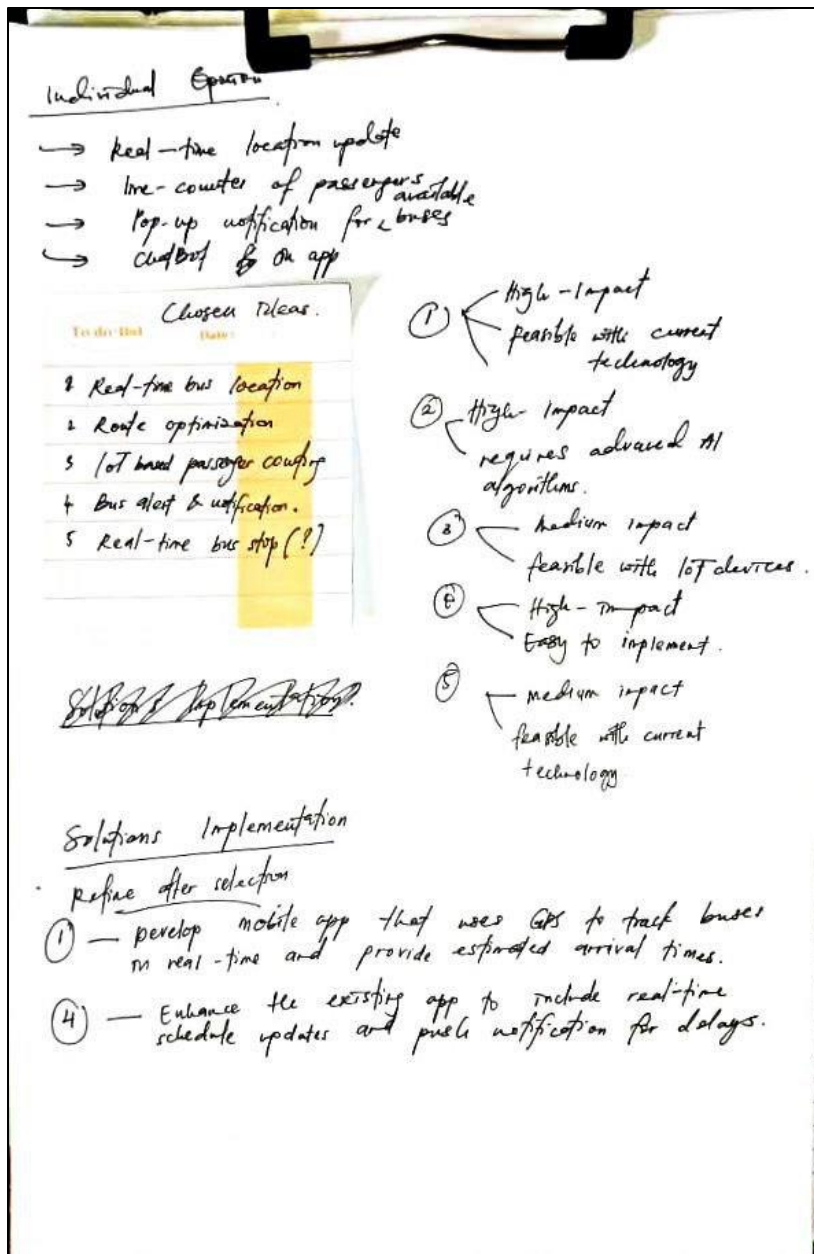 Individual Opinion
→ Real-time location update
→ live-counter of passengers
→ Pop-up notification for available buses
→ ChatBot on app
Chosen Ideas.
To do list Date:
1 Real-time bus location
2 Route optimization
3 IoT based passenger counting
4 Bus alert & notification.
5 Real-time bus stop (?)
① High-Impact
feasible with current
technology
② High-Impact
requires advanced AI
algorithms.
③ medium impact
feasible with IoT devices.
④ High-Impact
Easy to implement.
⑤ medium impact
feasible with current
technology
Solutions Implementation.
Solutions Implementation
Refine after selection
① — Develop mobile app that uses GPS to track buses
in real-time and provide estimated arrival times.
④ — Enhance the existing app to include real-time
schedule updates and push notification for delays.